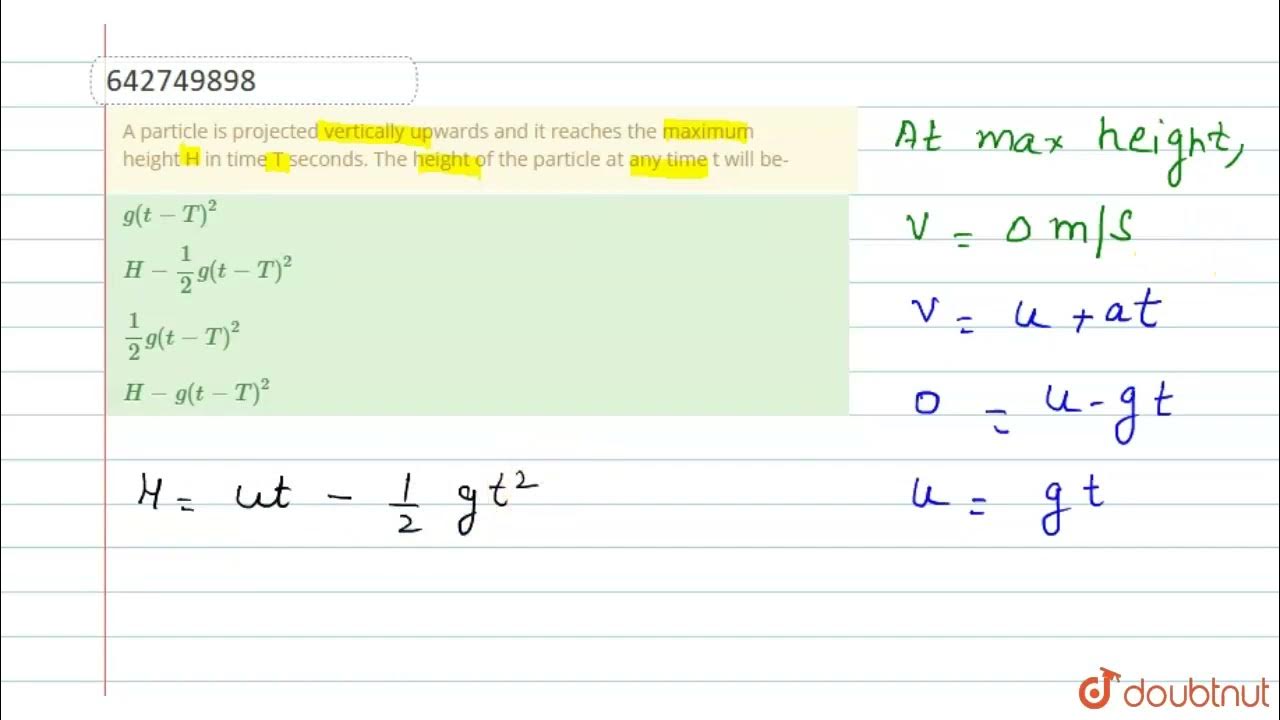 642749898
A particle is projected vertically upwards and it reaches the maximum
height H in time T seconds. The height of the particle at any time t will be-
g(t − T)²
H − 1/2 g(t − T)²
1/2 g(t − T)²
H − g(t − T)²
H = ut − 1/2 gt²
At max height,
v = 0 m/s
v = u + at
0 = u - gt
u = gt
doubtnut